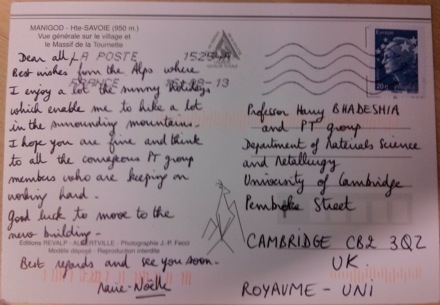 MANIGOD - Hte-SAVOIE (950 m.)
Vue générale sur le village et
le Massif de la Tournette
LA POSTE
15254A
-08-13
Europe
20g
Dear all,
Best wishes from the Alps where
I enjoy a lot the sunny holidays
which enable me to hike a lot
in the surrounding mountains.
I hope you are fine and think
to all the courageous PT group
members who are keeping on
working hard.
Good luck to move to the
new building.
Best regards and see you soon.
Marie-Noëlle
Editions REVALP - ALBERTVILLE - Photographie J.-P. Fecci
Modèle déposé - Reproduction interdite
Professor Harry BHADESHIA
and PT group
Department of Materials Science
and Metallurgy
University of Cambridge
Pembroke Street
CAMBRIDGE CB2 3QZ
UK.
ROYAUME - UNI